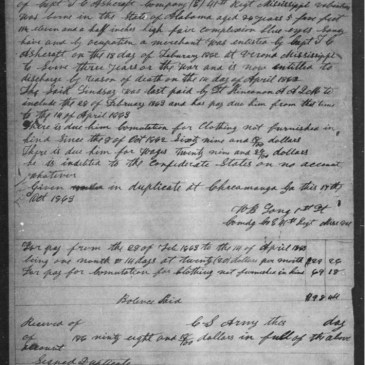 of Capt T C Ashcraft Company (B) 11th Regt Mississippi volunteers
was born in the State of Alabama aged 24 years 5 feet
eleven and a half inches high fair complexion blue eyes
hair and by occupation a merchant was enlisted by Capt T C
Ashcraft on the 18 day of February 1862 at Verona Mississippi
to serve three years or the war and is now entitled to
discharge by reason of death on the 14 day of April 1863
The said Lindsey was last paid by
include the 28 of February 1863 and has pay due him from this time
to the 14 of April 1863
There is due him Comutation for Clothing not furnished in
kind Since the 8 of Oct 1862 Sixty nine and dollars
There is due him for wages Twenty nine and dollars
he is indetted to the Confederate States on no account
whatever
Given in duplicate at Checamanga Ga this
Oct 1863
W B Long 1st Lt
Comdg Co B 11th Regt Miss Vol
For pay from the 28 of Feb 1863 to the 14 of April 1863
being one month & 14 days at twenty dollars per month
For pay for Comutation for Clothing not furnished in kind 69
Balance Paid
Received of C S Army this day
of 186 ninty eight and dollars in full of the above
account
Signed Duplicate